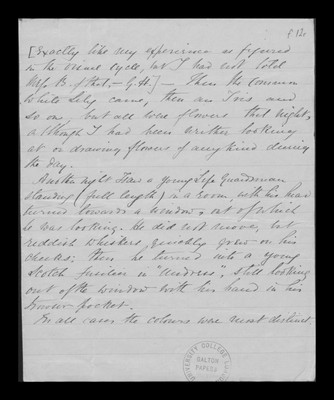 p 12c
[Exactly like my experience as figured
in the visual cycle, but I had not told
Mrs. B. of that. — G.H.] — Then the common
White Lily came, then an Iris and
so on, but all were flowers that night,
although I had been neither looking
at or drawing flowers of any kind during
the day.
Another night I saw a young Life Guardsman
standing (full length) in a room, with his head
turned towards a window, out of which
he was looking. He did not move, but
reddish whiskers quickly grew on his
cheeks; then he turned into a young
Scotch fusilier in undress, still looking
out of the window with his hand in his
trouser pocket.
In all cases the colours were most distinct.
UNIVERSITY COLLEGE
GALTON
PAPERS